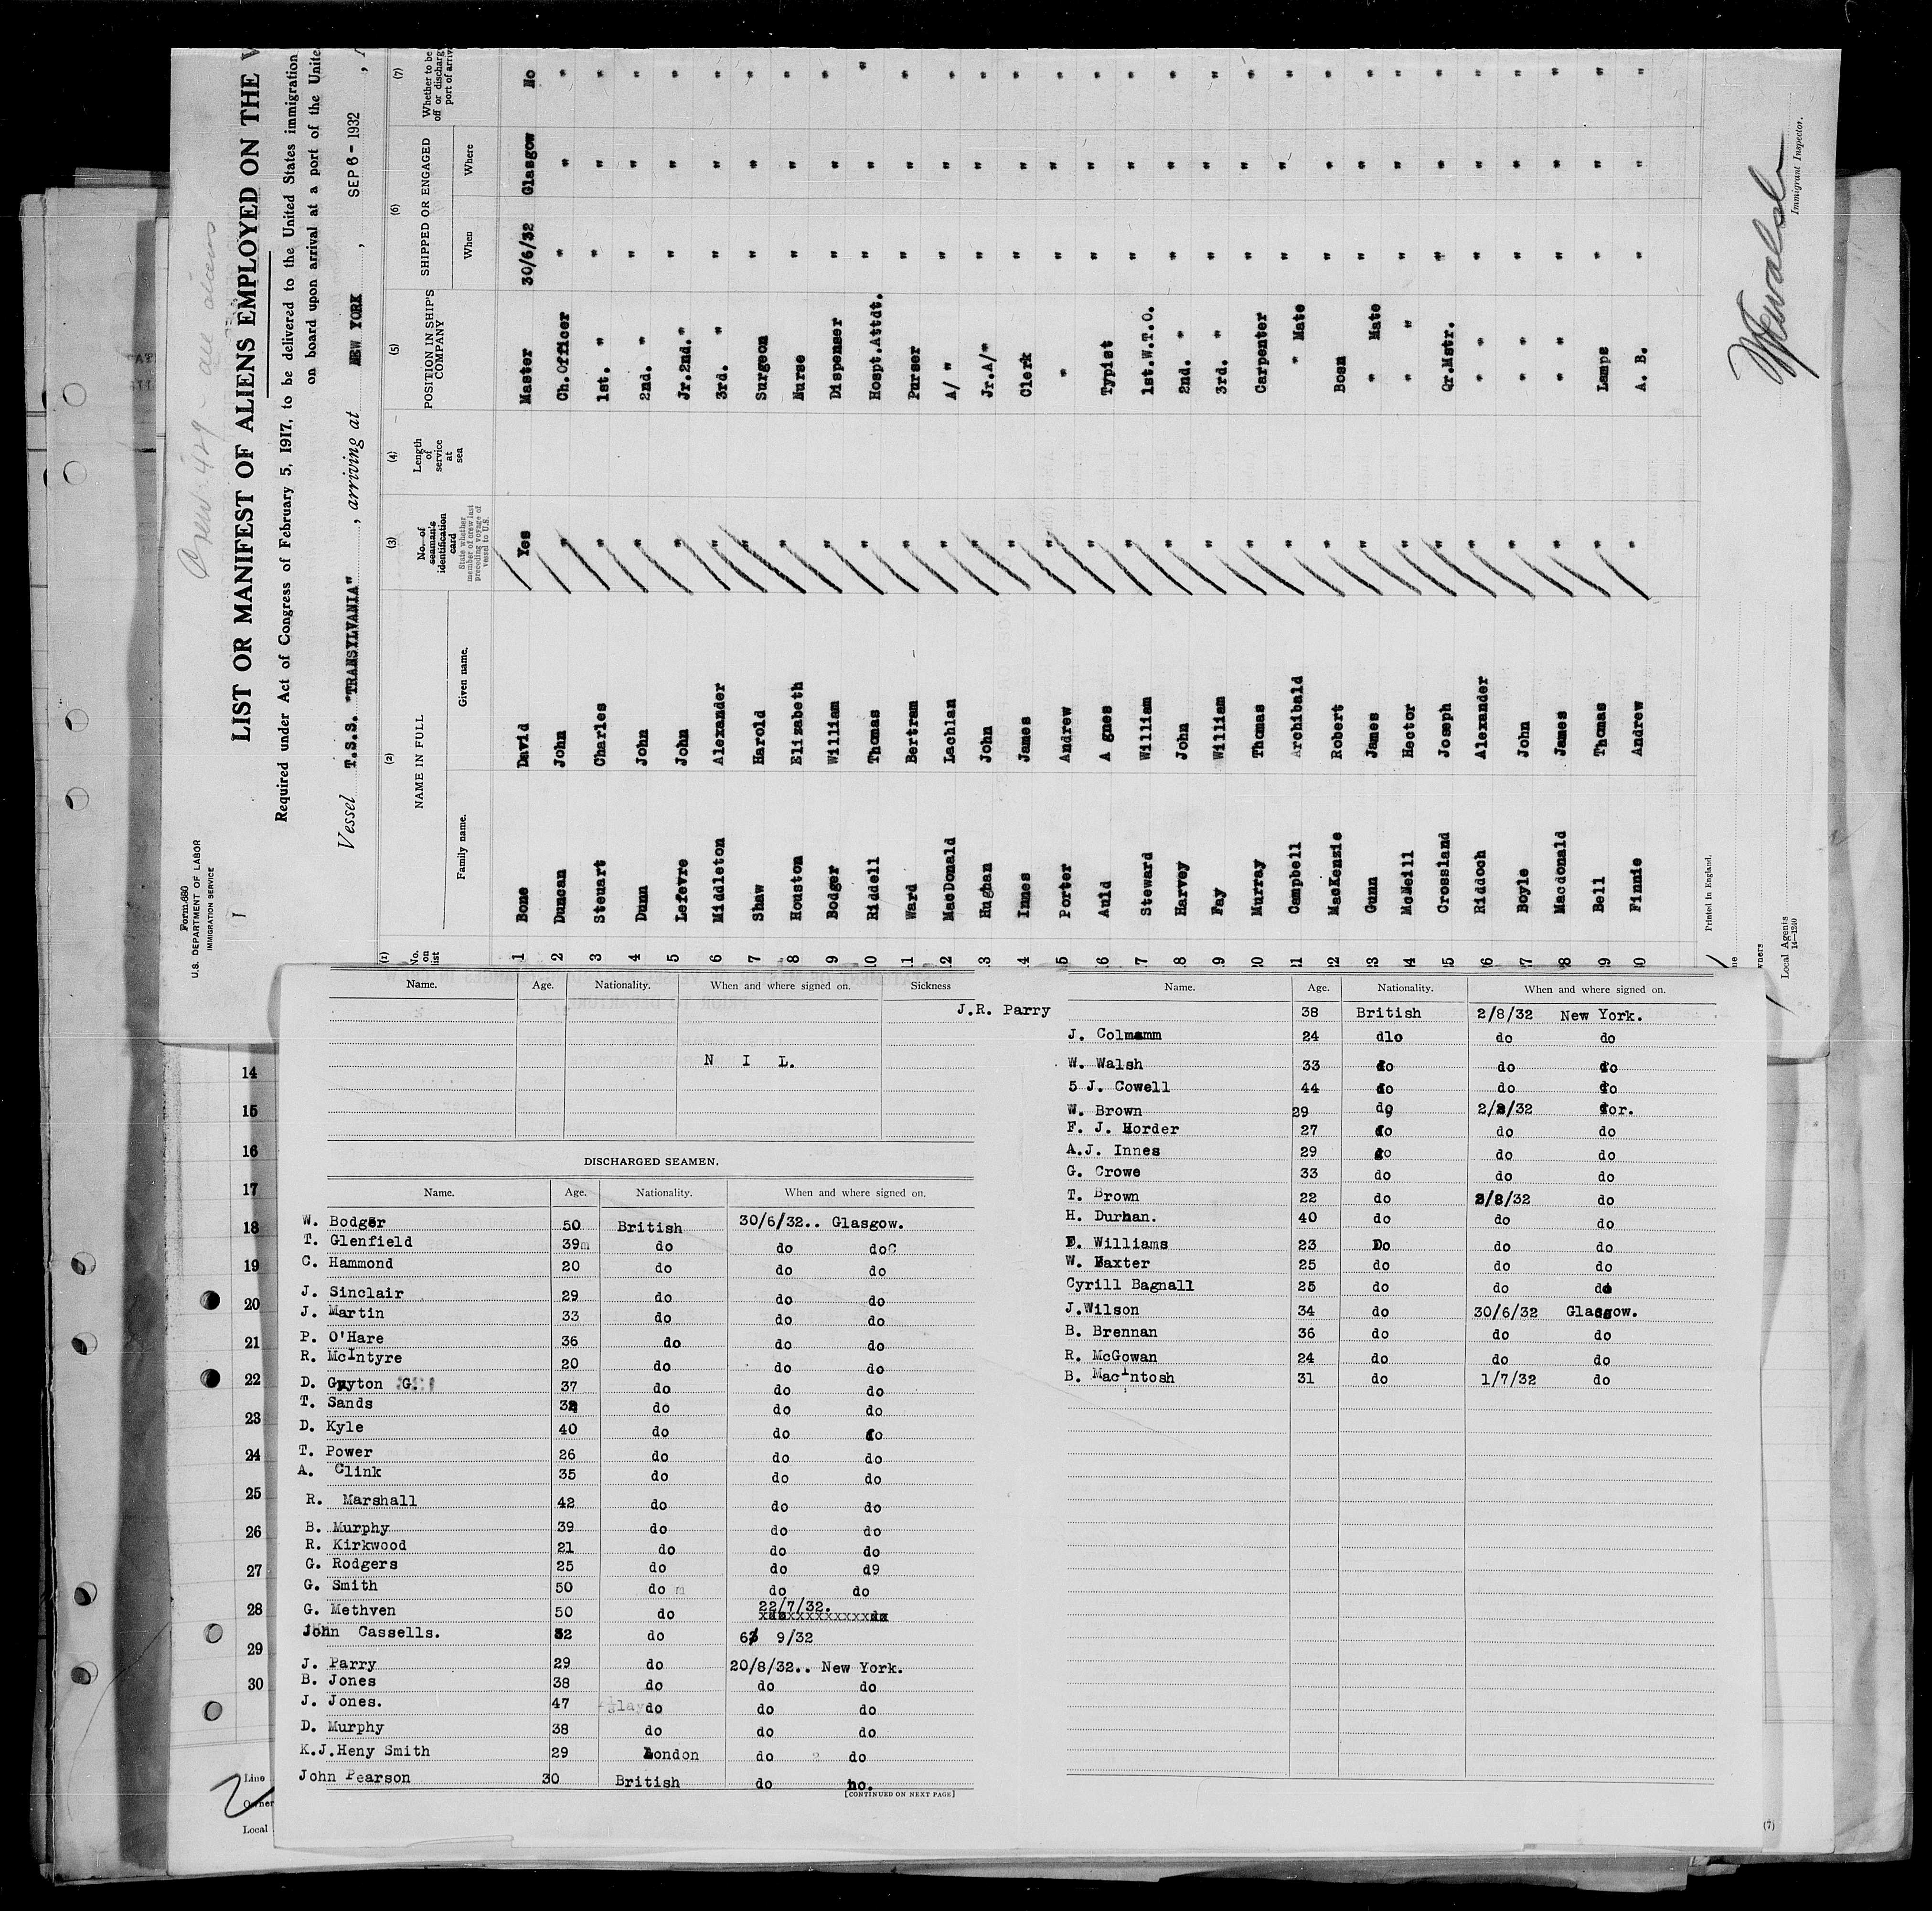 Crew 449 - all aliens
Form 680
U.S. DEPARTMENT OF LABOR
IMMIGRATION SERVICE
LIST OR MANIFEST OF ALIENS EMPLOYED ON THE
Required under Act of Congress of February 5, 1917, to be delivered to the United States immigration
on board upon arrival at a port of the Unite
Vessel T.S.S. "TRANSYLVANIA", arriving at NEW YORK, SEP 6 - 1932,
(1) (2) (3) (4) (5) (6) (7)
No. on list NAME IN FULL No. of seaman's identification card Length of service at sea POSITION IN SHIP'S COMPANY SHIPPED OR ENGAGED Whether to be off or discharg port of arri
Family name. Given name. State whether member of crew last preceding voyage of vessel to U.S. When Where
1 Bone David Yes Master 30/6/32 Glasgow No
2 Duncan John " Ch.Officer " " "
3 Steuart Charles " 1st. " " " "
4 Dunn John " 2nd. " " " "
5 Lefevre John " Jr.2nd. " " " "
6 Middleton Alexander " 3rd. " " " "
7 Shaw Harold " Surgeon " " "
8 Houston Elizabeth " Nurse " " "
9 Bodger William " Dispenser " " "
10 Riddell Thomas " Hospt.Attdt. " " "
11 Ward Bertram " Purser " " "
12 MacDonald Lachlan " A/ " " " "
3 Hughan John " Jr.A/" " " "
4 Innes James " Clerk " " "
5 Porter Andrew " " " " "
6 Auld A gnes " Typist " " "
7 Steward William " 1st.W.T.O. " " "
8 Harvey John " 2nd. " " " "
9 Fay William " 3rd. " " " "
0 Murray Thomas " Carpenter " " "
1 Campbell Archibald " " Mate " " "
2 MacKenzie Robert " Bosn " " "
3 Gunn James " " Mate " " "
4 McNeill Hector " " " " " "
5 Crossland Joseph " Qr.Mstr. " " "
6 Riddoch Alexander " " " " " "
7 Boyle John " " " " " "
8 Macdonald James " " " " " "
9 Bell Thomas " Lamps " " "
0 Finnie Andrew " A. B. " " "
Printed in England.
ne
wners
Local Agents
14-1240
Immigrant Inspector.
Name. Age. Nationality. When and where signed on. Sickness
N I L.
DISCHARGED SEAMEN.
Name. Age. Nationality. When and where signed on.
W. Bodger 50 British 30/6/32.. Glasgow.
T. Glenfield 39m do do doC
C. Hammond 20 do do do
J. Sinclair 29 do do do
J. Martin 33 do do do
P. O'Hare 36 do do do
R. McIntyre 20 do do do
D. Guyton G. 37 do do do
T. Sands do do do
D. Kyle 40 do do do
T. Power 26 do do do
A. Clink 35 do do do
R. Marshall 42 do do do
B. Murphy 39 do do do
R. Kirkwood 21 do do do
G. Rodgers 25 do do d9
G. Smith 50 do m do do
G. Methven 50 do 22/7/32.
John Cassells. 52 do 6 9/32
J. Parry 29 do 20/8/32.. New York.
B. Jones 38 do do do
J. Jones. 47 do do do
D. Murphy 38 do do do
K.J.Heny Smith 29 London do 2 do
John Pearson 30 British do no.
[CONTINUED ON NEXT PAGE]
Name. Age. Nationality. When and where signed on.
J.R. Parry 38 British 2/8/32 New York.
J. Colmamm 24 dlo do do
W. Walsh 33 do do do
5 J. Cowell 44 do do do
W. Brown 29 do 2/8/32 for.
F. J. Horder 27 do do do
A.J. Innes 29 do do do
G. Crowe 33 do do do
T. Brown 22 do 2/8/32 do
H. Durhan. 40 do do do
D. Williams 23 Do do do
W. Baxter 25 do do do
Cyrill Bagnall 25 do do do
J.Wilson 34 do 30/6/32 Glasgow.
B. Brennan 36 do do do
R. McGowan 24 do do do
B. MacIntosh 31 do 1/7/32 do
(7)
14
15
16
17
18
19
20
21
22
23
24
25
26
27
28
29
30
Line
Owner
Local